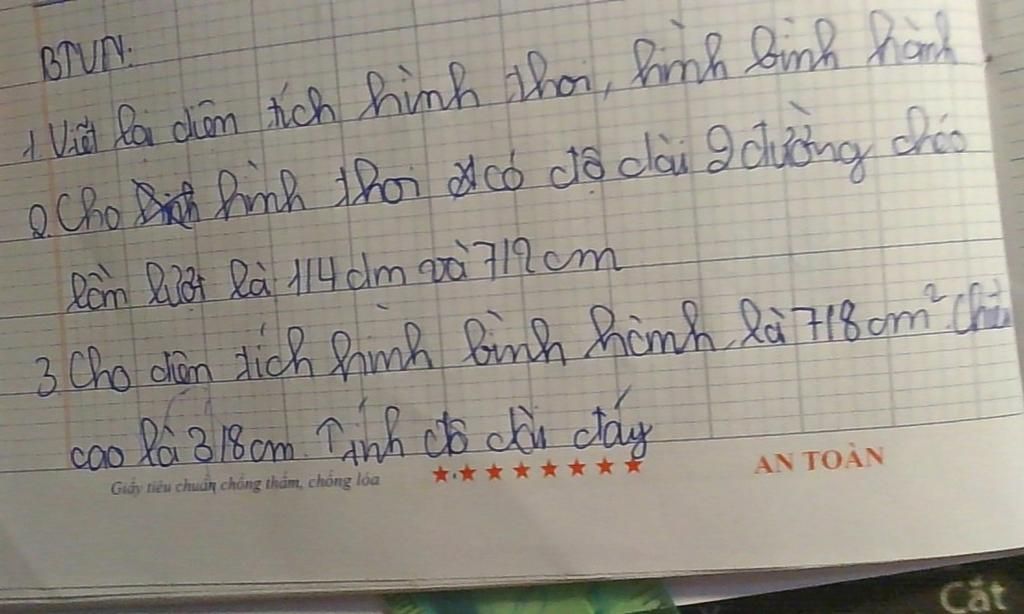 BTVN:
1. Viết lại diện tích hình thoi, hình bình hành
2. Cho hình thoi có độ dài 2 đường chéo
lần lượt là 1/4 dm và 7/2 cm
3. Cho diện tích hình bình hành là 7/8 cm² chiều
cao là 3/8 cm. Tính độ dài đáy
Giấy tiêu chuẩn chống thấm, chống lóa
AN TOÀN
Cắt